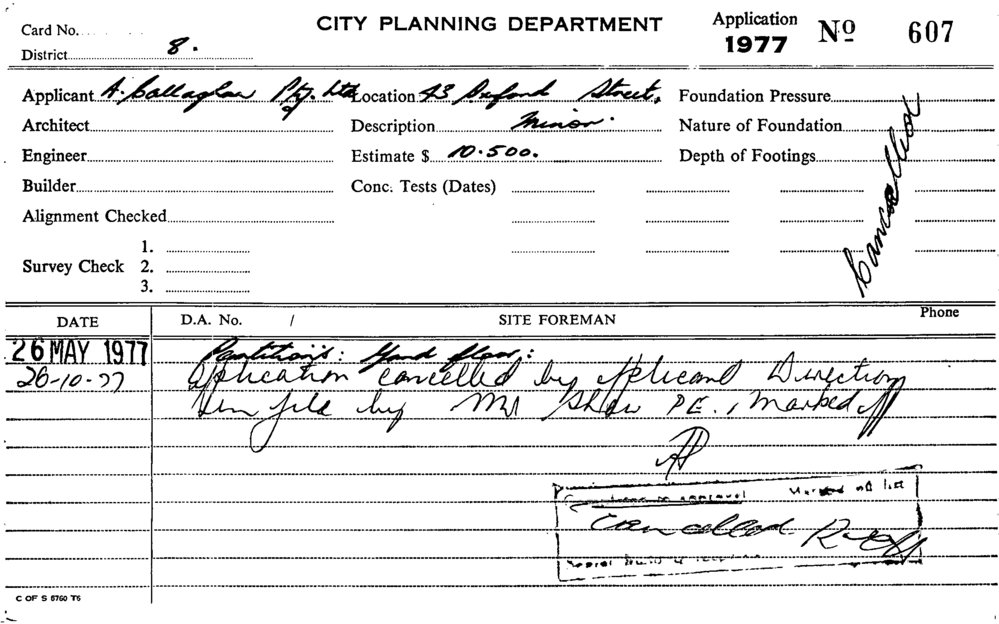 CITY PLANNING DEPARTMENT
Application 1977 Nº 607
Card No.
District 8.
Applicant A. Callaghan Pty. Ltd. Location 43 Street,
Foundation Pressure
Architect
Description Minor.
Nature of Foundation
Engineer
Estimate $ 10.500.
Depth of Footings
Cancelled
Builder
Conc. Tests (Dates)
Alignment Checked
Survey Check
1.
2.
3.
DATE D.A. No. / SITE FOREMAN Phone
26 MAY 1977 Partitions: floor:
26-10-77 Application cancelled by Applicant Direction
file by Mr Shaw P.E., Marked off
approval Marked off list
Cancelled
C OF S 6760 T6